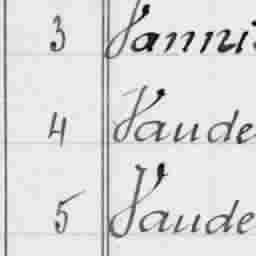 3 Vanni
4 Vaude
5 Vaude